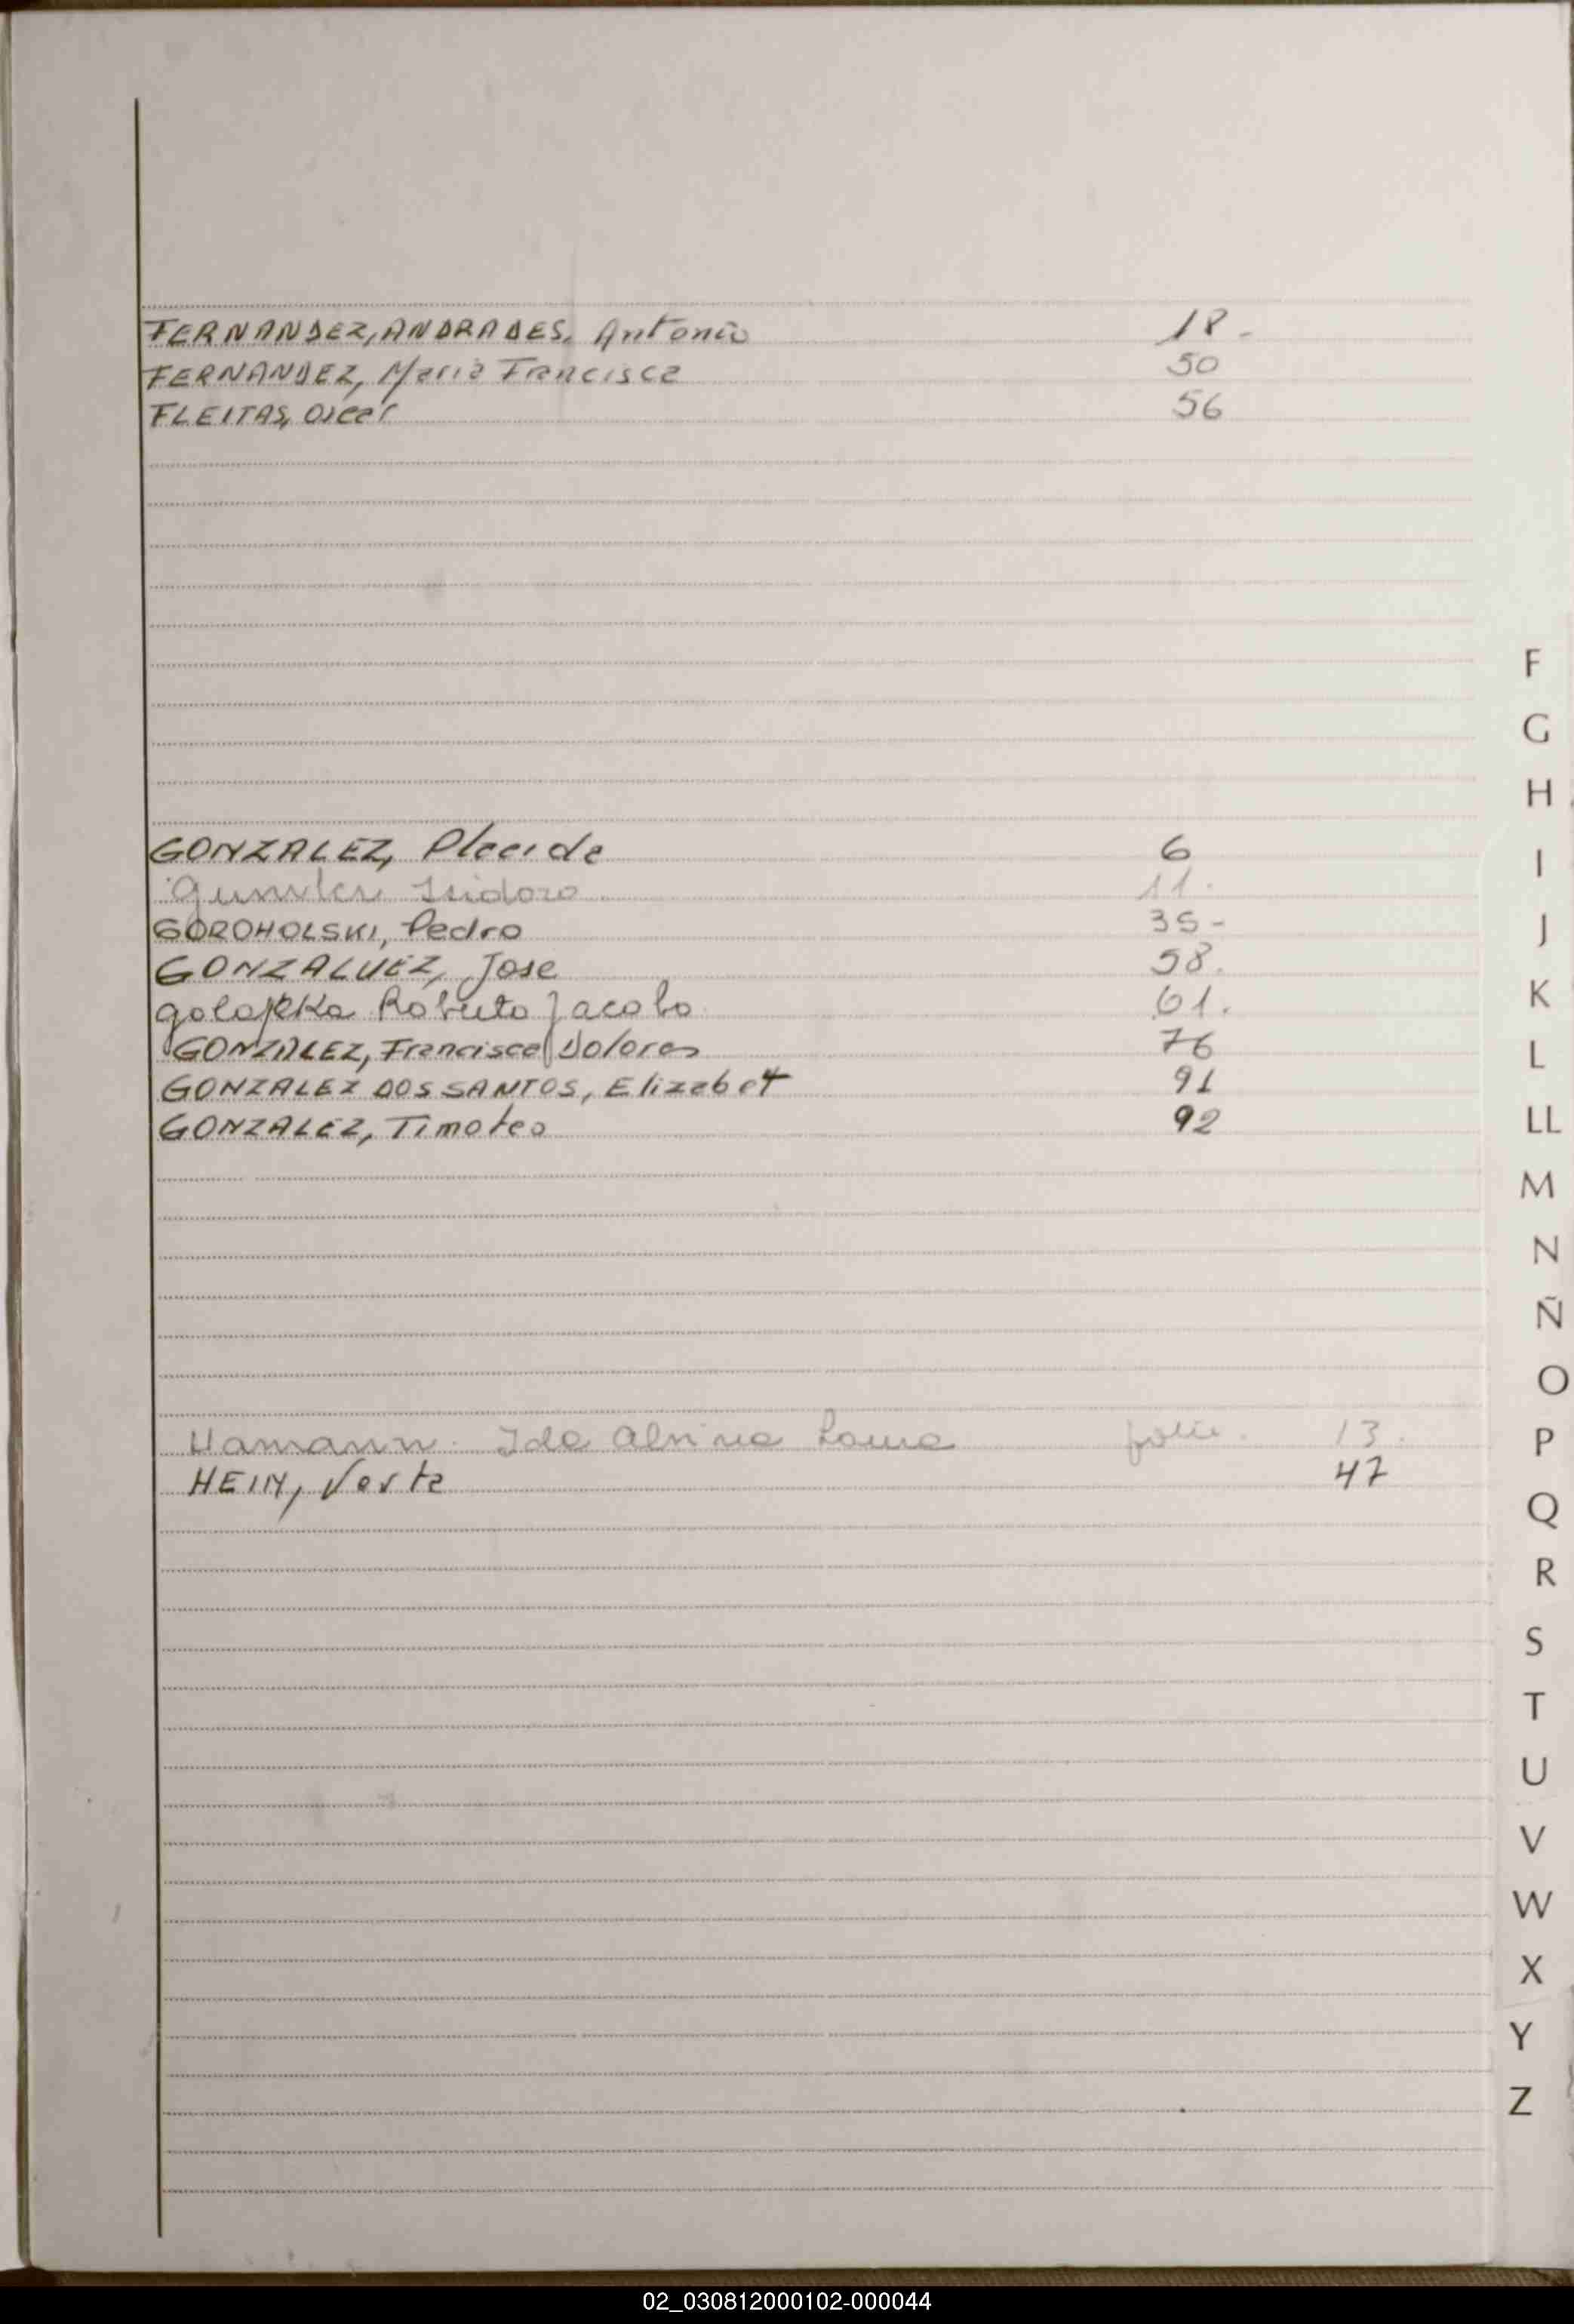 FERNANDEZ, ANDRADES, Antonio 18-
FERNANDEZ, Maria Francisca 50
FLEITAS, Oscar 56
GONZALEZ, Placida 6
Isidoro 11.
GOROHOLSKI, Pedro 35-
GONZALVEZ, Jose 58.
Roberto Jacobo 61.
GONZALEZ, Francisca Dolores 76
GONZALEZ DOS SANTOS, Elizabet 91
GONZALEZ, Timoteo 92
Hamann Ida folio. 13.
47
F
G
H
I
J
K
L
LL
M
N
Ñ
O
P
Q
R
S
T
U
V
W
X
Y
Z
02_030812000102-000044